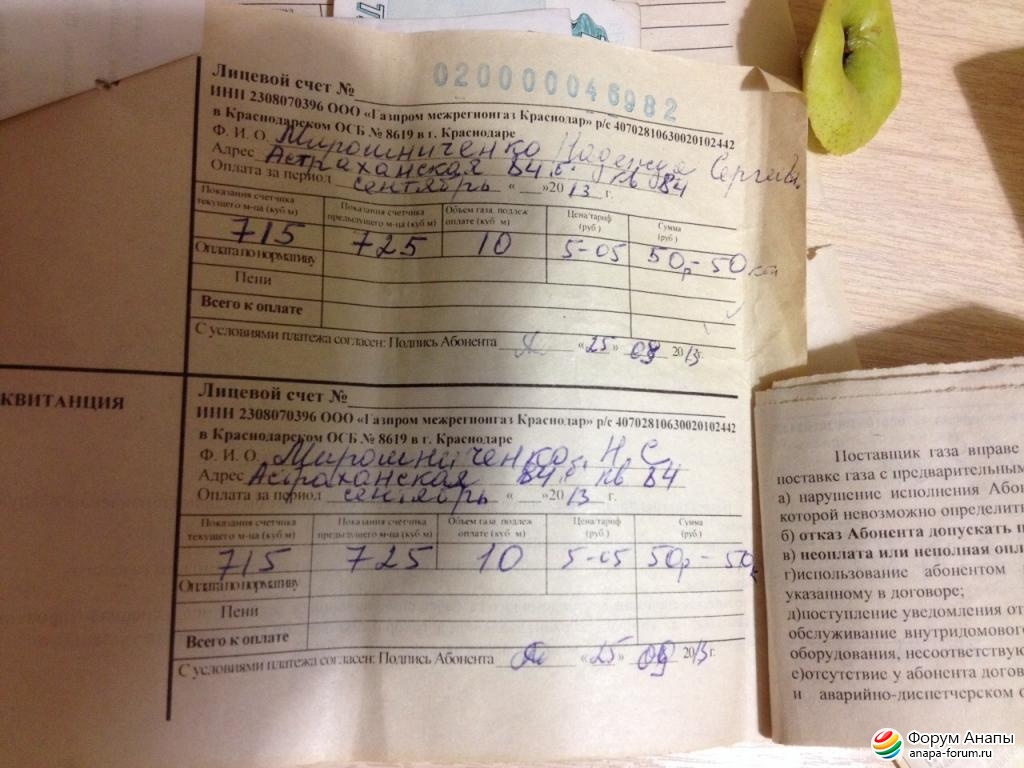 Лицевой счет № 02000004 6982
ИНН 2308070396 ООО «Газпром межрегионгаз Краснодар» р/с 40702810630020102442
в Краснодарском ОСБ № 8619 в г. Краснодаре
Ф. И. О. Мирошниченко Надежда Сергеевн.
Адрес Астраханская 84 б. кв 84
Оплата за период сентябрь « »20 13 г.
Показания счетчика текущего м-ца (куб м) Показания счетчика предыдущего м-ца (куб м) Объем газа. подлеж оплате (куб м) Цена/тариф (руб.) Сумма (руб.)
715 725 10 5-05 50р-50 коп
Оплата по нормативу
Пени
Всего к оплате
С условиями платежа согласен: Подпись Абонента «25» 09 2013г.
КВИТАНЦИЯ
Лицевой счет №
ИНН 2308070396 ООО «Газпром межрегионгаз Краснодар» р/с 40702810630020102442
в Краснодарском ОСБ № 8619 в г. Краснодаре
Ф. И. О. Мирошниченко Н. С.
Адрес Астраханская 84 б. кв 84
Оплата за период сентябрь « »20 13 г.
Показания счетчика текущего м-ца (куб м) Показания счетчика предыдущего м-ца (куб м) Объем газа. подлеж оплате (куб м) Цена/тариф (руб.) Сумма (руб.)
715 725 10 5-05 50р-50к
Оплата по нормативу
Пени
Всего к оплате
С условиями платежа согласен: Подпись Абонента «25» 09 2013г.
Поставщик газа вправе
поставке газа с предварительным
а) нарушение исполнения Або
которой невозможно определить
б) отказ Абонента допускать п
в) неоплата или неполная опл
г)использование абонентом
указанному в договоре;
д)поступление уведомления от
обслуживание внутридомового
оборудования, несоответствую
е)отсутствие у абонента догов
и аварийно-диспетчерском о
Форум Анапы
anapa-forum.ru